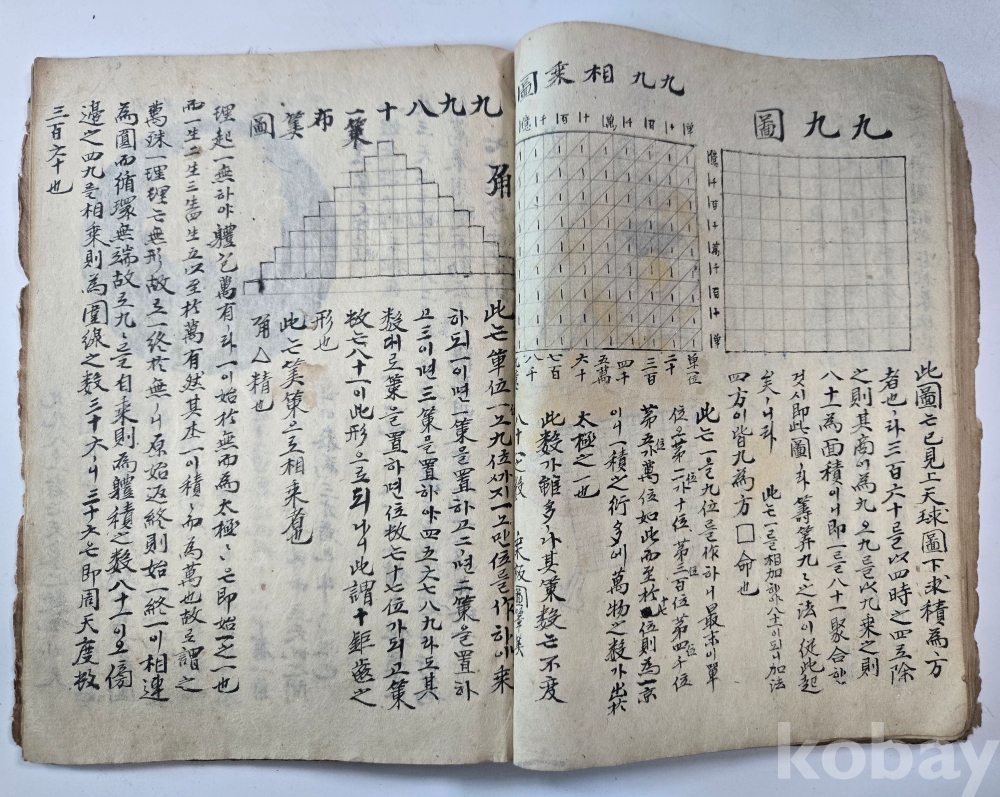 九九圖
億
千
百
十
萬
千
百
十
單
此圖는已見上天球圖下求積為方
者也ㅣ라三百六十를以四時之四로除
之則其商이為九오九를以九乘之則
八十一為面積이니即一를八十一聚合한
것시即此圖ㅣ라籌算九〻之法이從此起
矣ㅣ니라
此는一를相加하야八十一이되니加法
四方이皆九為方□命也
九九相乘圖
單
十
百
千
萬
十
百
千
億
單位
二十
三百
四千
五萬
六十
七百
八千
此는一를九位를作하니最末이單
位오第二가十位第三百位第四千位
第五가萬位如此而至於
位則為一京
이니一積之行多애萬物之數가出於
太極之一也
此數가雖多라其策數는不度
八十一之數
九九八十一策布筭圖
此는單位一로九位까지一로만位를作하애乘
하되一이면一策을置하고二면二策을置하
고三이면三策을置하야四五六七八九라도其
數대로策을置하면位數는十七位가되고策
數는八十一이此形으로되나니此謂十鉅齒之
形也
此는筭策으로相乘흠也
角△精也
理起一無하야軆包萬有라一이始於無而為太極〻은即始一之一也
而一生二生三生四生五以至於萬有然其本一이積〻而為萬也故로謂之
萬殊一理理는無形故로一終於無ㅣ니原始返終則始一終一이相連
為圓而循環無端故로九〻를自乘則為軆積之數八十一이오傍
邊之四九를相乘則為圍線之數三十六ㅣ니三十六은即周天度數
三百六十也
kobay